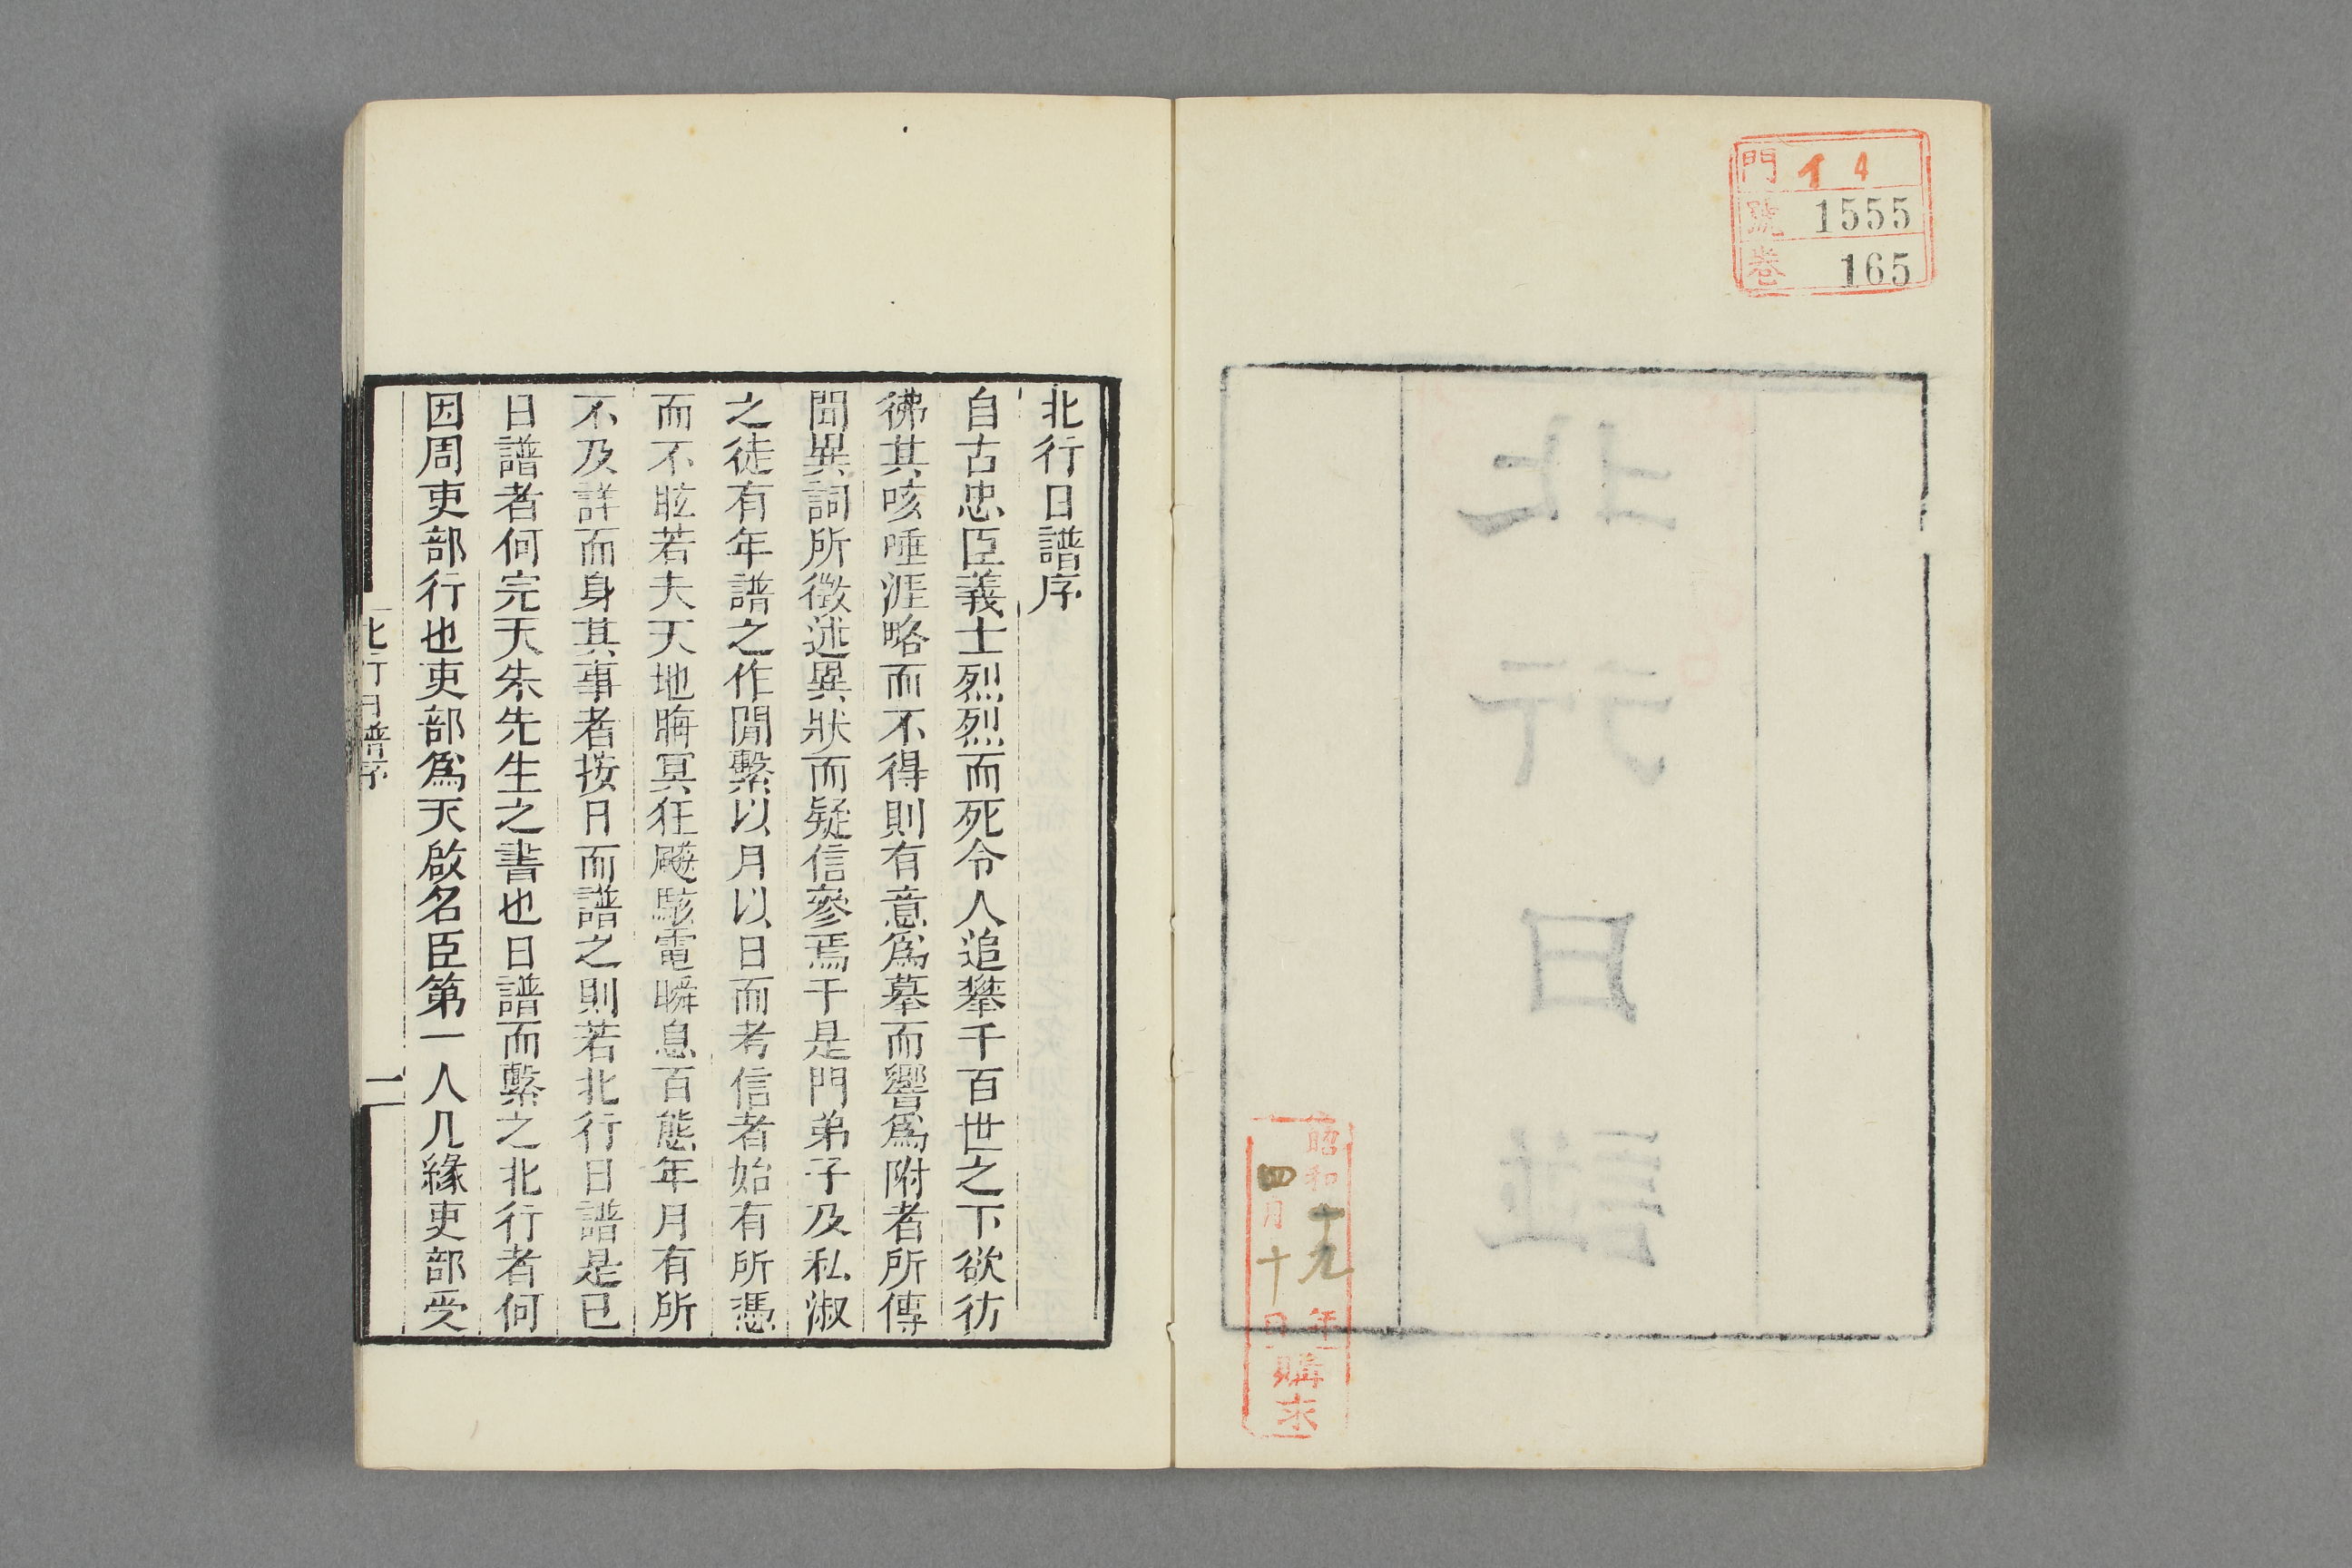 門 イ 4
號 1555
卷 165
北行日譜
昭和十九年
四月十日
購求
北行日譜序
自古忠臣義士烈烈而死令人追攀千百世之下欲彷
彿其咳唾涯略而不得則有意爲摹而響爲附者所傳
聞異詞所徵述異狀而疑信參焉于是門弟子及私淑
之徒有年譜之作閒繫以月以日而考信者始有所憑
而不眩若夫天地晦冥狂飈駭電瞬息百態年月有所
不及詳而身其事者按日而譜之則若北行日譜是已
日譜者何完天朱先生之書也日譜而繫之北行者何
因周吏部行也吏部爲天啟名臣第一人凡緣吏部受
北行日譜序